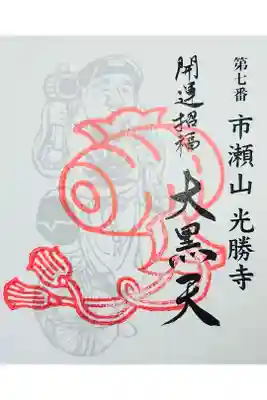 第七番 市瀬山 光勝寺
開運招福
大黒天